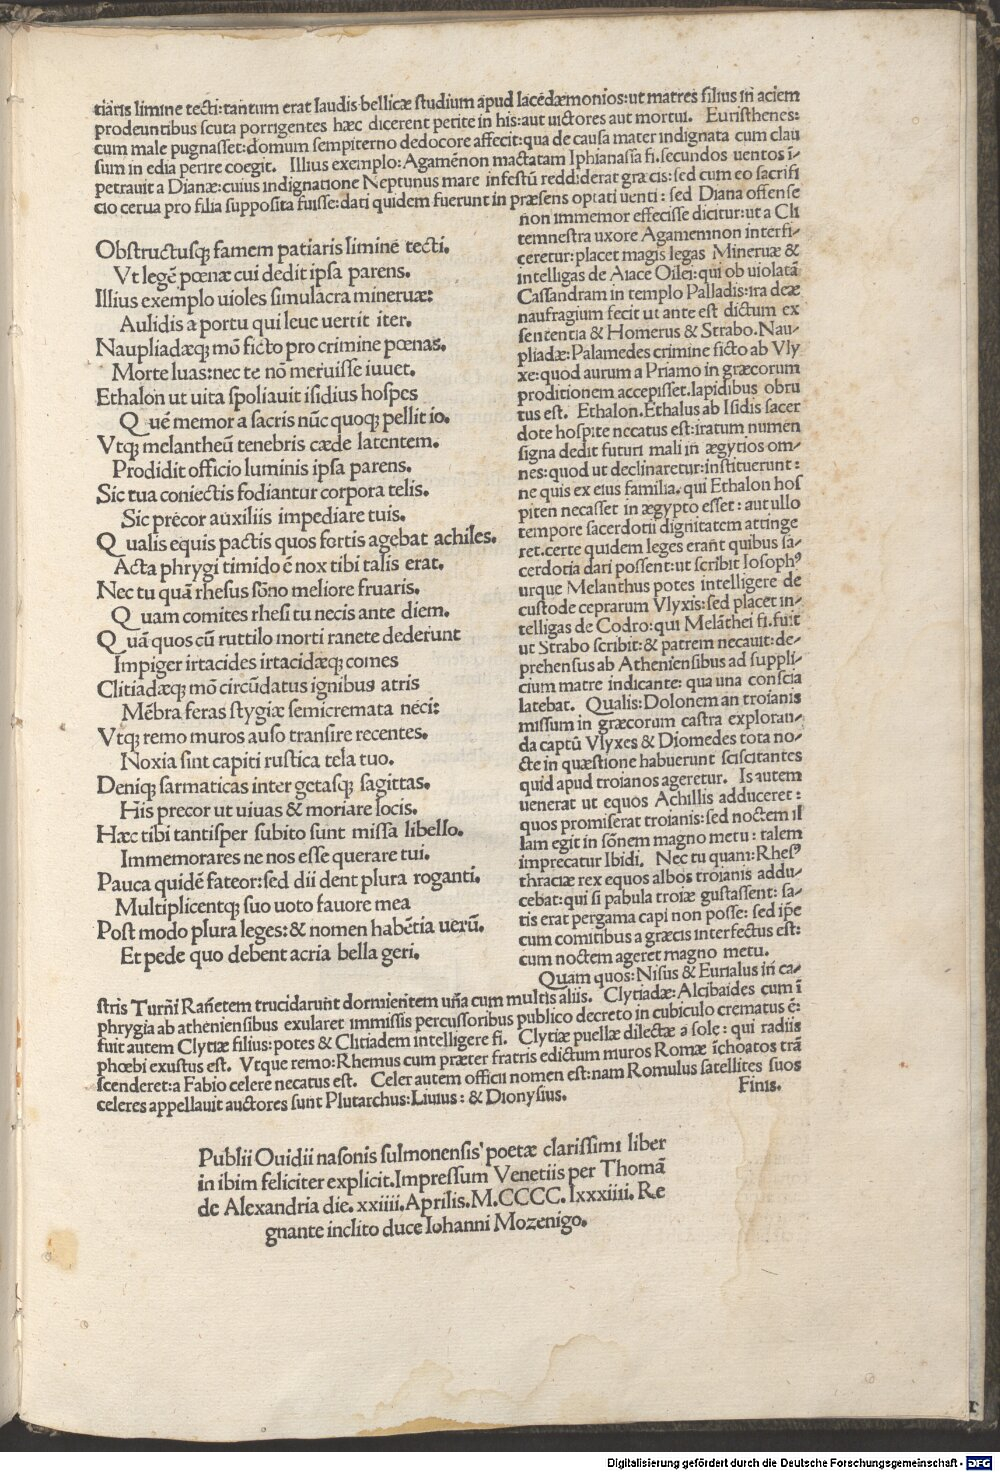 tiaris limine tecti:tantum erat laudis bellicæ studium apud lacedæmonios:ut matres filius in aciem
prodeuntibus scuta porrigentes hæc dicerent petite in his:aut uictores aut mortui. Euristhenes:
cum male pugnasset:domum sempiterno dedocore affecit:qua de causa mater indignata cum clau
sum in edia perire coegit. Illius exemplo:Agamēnon mactatam Iphianassa fi.secundos uentos ī-
petrauit a Dianæ:cuius indignatione Neptunus mare infestū reddiderat græcis:sed cum eo sacrifi
cio cerua pro filia supposita fuisse:dati quidem fuerunt in præsens optati uenti: sed Diana offense
non immemor effecisse dicitur:ut a Cli
temnestra uxore Agamemnon interfi-
ceretur:placet magis legas Mineruæ &
intelligas de Aiace Oilei:qui ob uiolatā
Cassandram in templo Palladis:ira deæ
naufragium fecit ut ante est dictum ex
sententia & Homerus & Strabo.Nau-
pliadæ:Palamedes crimine ficto ab Vly
xe:quod aurum a Priamo in græcorum
proditionem accepisset.lapidibus obru
tus est. Ethalon.Ethalus ab Isidis sacer
dote hospite necatus est:iratum numen
signa dedit futuri mali in ægytios om-
nes:quod ut declinaretur:instituerunt:
ne quis ex eius familia.qui Ethalon hos
piten necasset in ægypto esset: aut ullo
tempore sacerdotii dignitatem attinge
ret.certe quidem leges erant quibus sa-
cerdotia dari possent:ut scribit Iosophꝰ
urque Melanthus potes intelligere de
custode ceprarum Vlyxis:sed placet in-
telligas de Codro:qui Melāthei fi.fuit
ut Strabo scribit:& patrem necauit:de-
prehensus ab Atheniensibus ad suppli-
cium matre indicante: qua una conscia
latebat. Qualis:Dolonem an troianis
missum in græcorum castra exploran-
da captū Vlyxes & Diomedes tota no-
cte in quæstione habuerunt sciscitantes
quid apud troianos ageretur. Is autem
uenerat ut equos Achillis adduceret:
quos promiserat troianis:sed noctem il
lam egit in sōnem magno metu: talem
imprecatur Ibidi. Nec tu quam:Rhesꝰ
thraciæ rex equos albos troianis addu-
cebat:qui si pabula troiæ gustassent: sa-
tis erat pergama capi non posse: sed ip̄e
cum comitibus a græcis interfectus est:
cum noctem ageret magno metu.
Quam quos:Nisus & Eurialus in ca-
Obstructusqꝫ famem patiaris limine tecti.
Vt legē pœnæ cui dedit ipsa parens.
Illius exemplo uioles simulacra mineruæ:
Aulidis a portu qui leue uertit iter.
Naupliadæqꝫ mō ficto pro crimine pœnas.
Morte luas:nec te nō meruisse iuuet.
Ethalon ut uita spoliauit isidius hospes
Q uē memor a sacris nūc quoqꝫ pellit io.
Vtqꝫ melantheū tenebris cæde latentem.
Prodidit officio luminis ipsa parens.
Sic tua coniectis fodiantur corpora telis.
Sic precor auxiliis impediare tuis.
Q ualis equis pactis quos fortis agebat achiles.
Acta phrygi timido ē nox tibi talis erat.
Nec tu quā rhesus sōno meliore fruaris.
Q uam comites rhesi tu necis ante diem.
Q uā quos cū ruttilo morti ranete dederunt
Impiger irtacides irtacidæqꝫ comes
Clitiadæqꝫ mō circūdatus ignibus atris
Mēbra feras stygiæ semicremata neci:
Vtqꝫ remo muros auso transire recentes.
Noxia sint capiti rustica tela tuo.
Deniqꝫ sarmaticas inter getasqꝫ sagittas.
His precor ut uiuas & moriare locis.
Hæc tibi tantisper subito sunt missa libello.
Immemorares ne nos esse querare tui.
Pauca quidē fateor:sed dii dent plura roganti.
Multiplicentqꝫ suo uoto fauore mea
Post modo plura leges:& nomen habētia uerū.
Et pede quo debent acria bella geri.
stris Turni Ranetem trucidarunt dormientem una cum multis aliis. Clytiadæ:Alcibaides cum ī
phrygia ab atheniensibus exularet immissis percussoribus publico decreto in cubiculo crematus ē:
fuit autem Clytiæ filius:potes & Clitiadem intelligere fi. Clytiæ puellæ dilectæ a sole: qui radiis
phœbi exustus est. Vtque remo:Rhemus cum præter fratris edictum muros Romæ īchoatos trā
scenderet:a Fabio celere necatus est. Celer autem officii nomen est:nam Romulus satellites suos
celeres appellauit auctores sunt Plutarchus:Liuius: & Dionysius.
Finis.
Publii Ouidii nasonis sulmonensis poetæ clarissimi liber
in ibim feliciter explicit.Impressum Venetiis per Thomā
de Alexandria die. xxiiii.Aprilis.M.CCCC.lxxxiiii.Re
gnante inclito duce Iohanni Mozenigo.
Digitalisierung gefördert durch die Deutsche Forschungsgemeinschaft - DFG